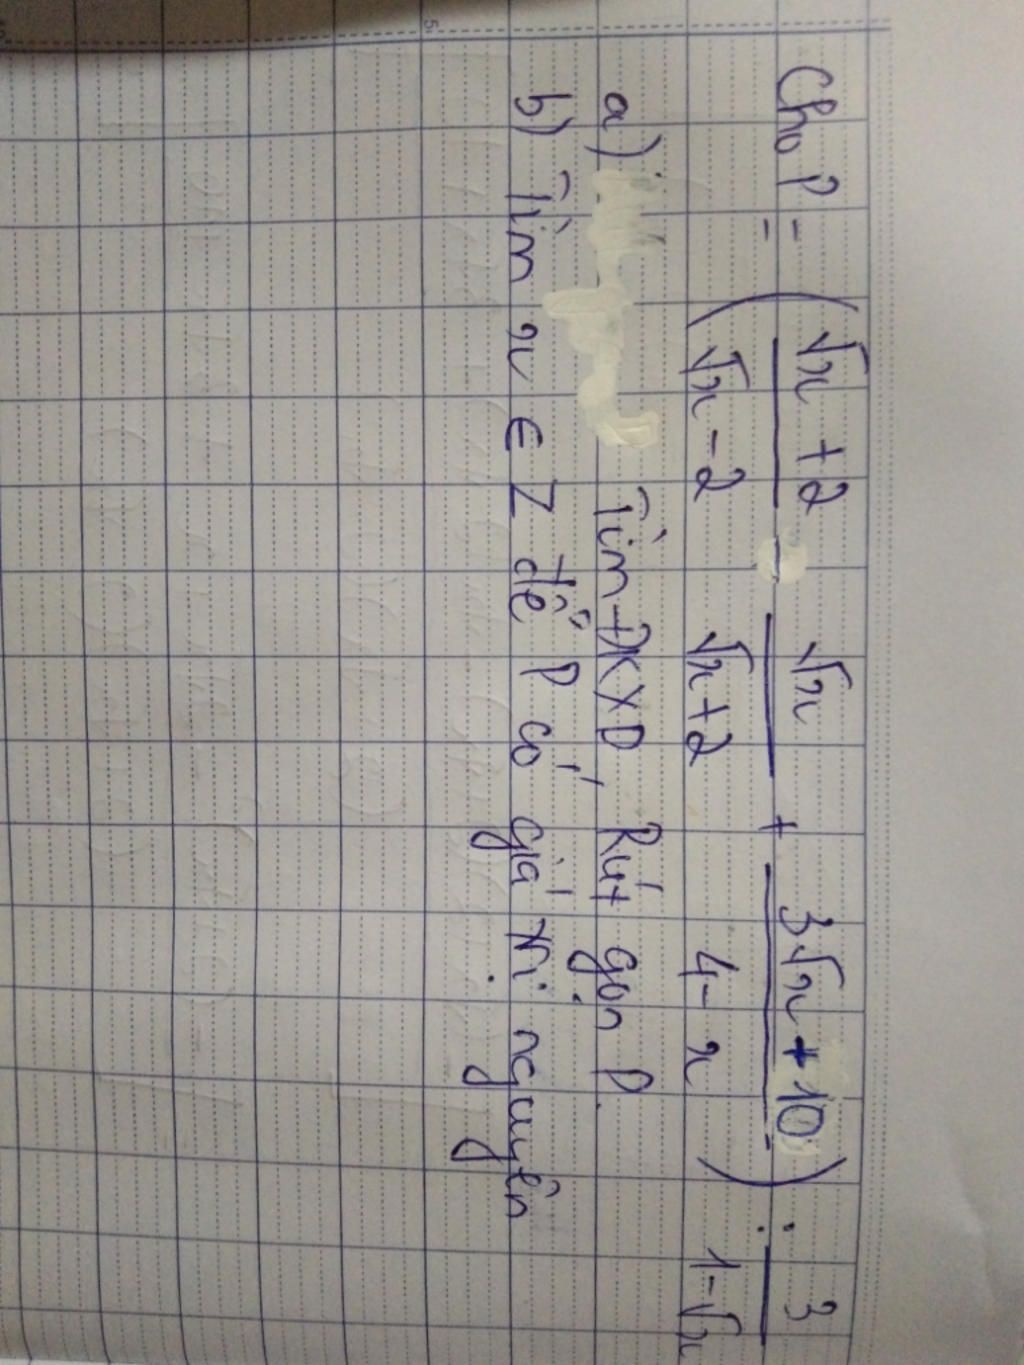 Cho P = ( (√x + 2)/(√x - 2) - √x/(√x + 2) + (3√x + 10)/(4 - x) ) : 3/(1 - √x)
a) Tìm ĐKXĐ, Rút gọn P.
b) Tìm x ∈ Z để P có giá trị nguyên